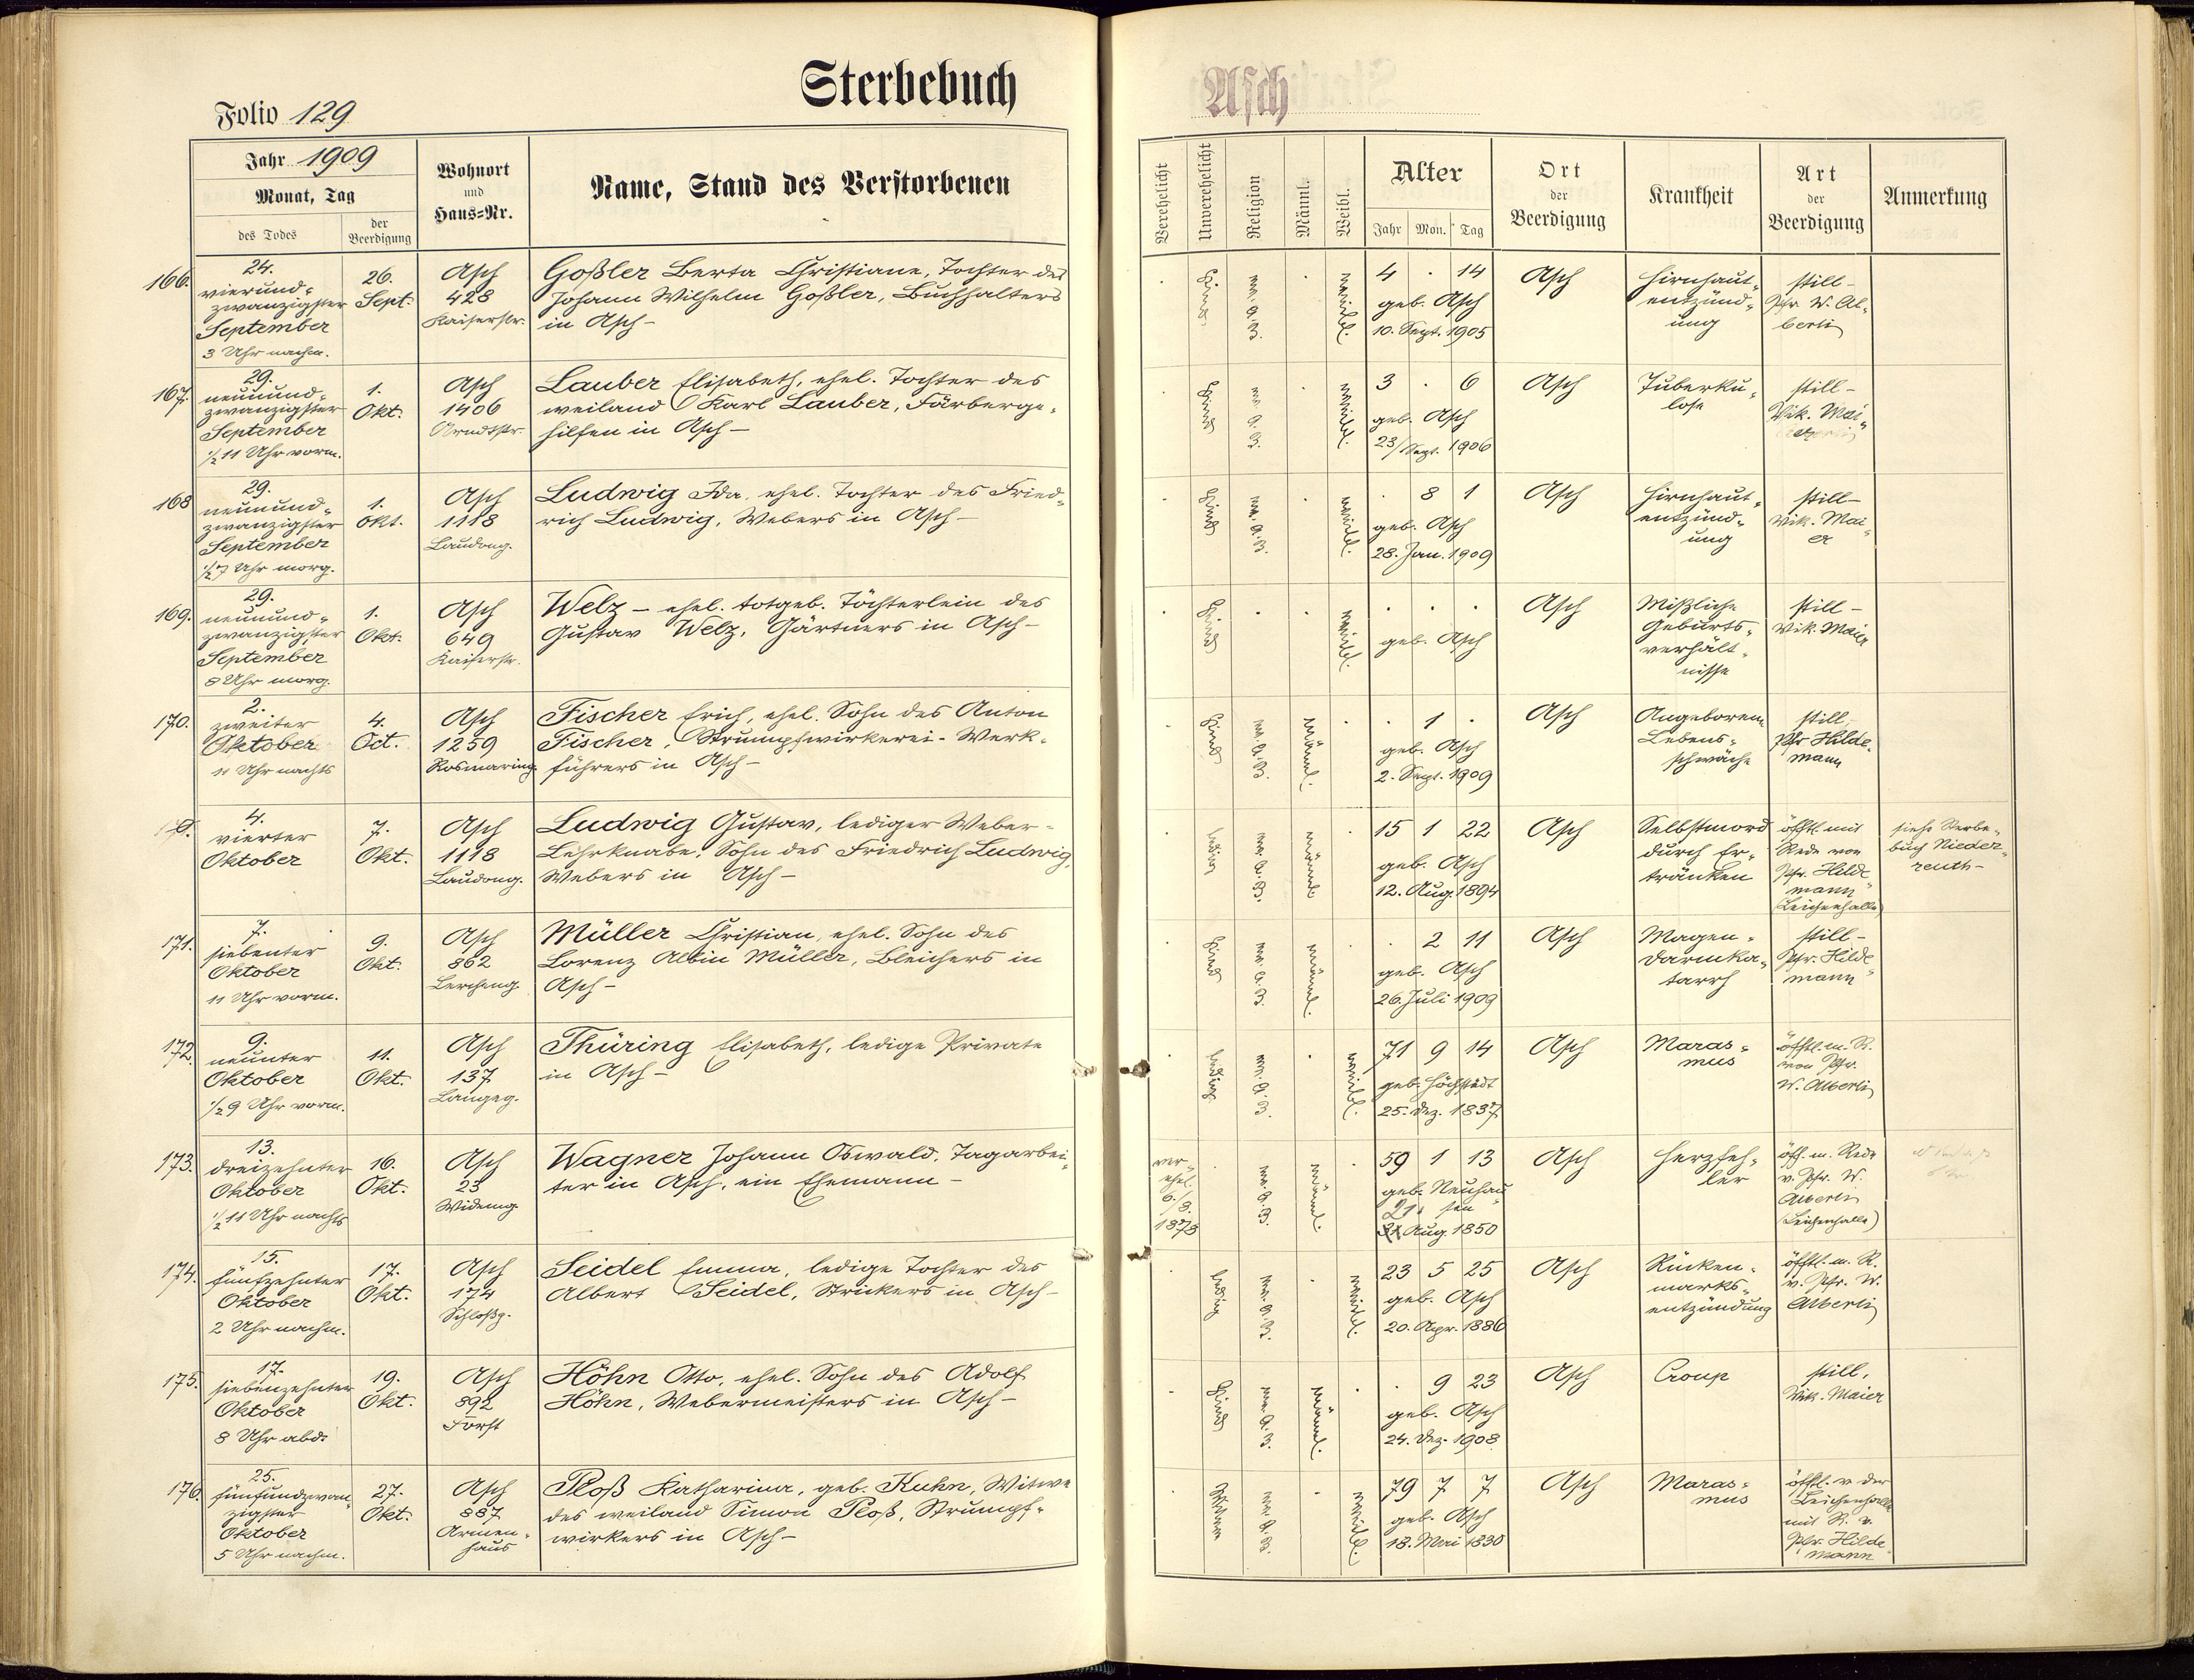 Sterbebuch
Asch
Folio 129
Jahr 1909
Monat, Tag
des Todes
der Beerdigung
Wohnort
und
Haus=Nr.
Name, Stand des Verstorbenen
Verehelicht
Unverehelicht
Religion
Männl.
Weibl.
Alter
Jahr Mon. Tag
Ort
der
Beerdigung
Krankheit
Art
der
Beerdigung
Anmerkung
166.
24.
vierund=
zwanzigster
September
3 Uhr nachm.
26.
Sept.
Asch
428
Kaiserstr.
Goßler Berta Christiane, Tochter des
Johann Wilhelm Goßler, Buchhalters
in Asch-
Kind
ev. A. B.
weibl.
4 . 14
geb. Asch
10. Sept. 1905
Asch
Hirnhaut=
entzünd=
ung
still-
Pfr. W. Al=
berti
167.
29.
neunund=
zwanzigster
September
1/2 11 Uhr vorm.
1.
Okt.
Asch
1406
Arndtstr.
Lauber Elisabeth, ehel. Tochter des
weiland Karl Lauber, Färberge=
hilfen in Asch-
Kind
ev. A. B.
weibl.
3 . 6
geb. Asch
23/Sept. 1906
Asch
Tuberku=
lose
still-
Vik. Mai=
168
29.
neunund=
zwanzigster
September
1/2 7 Uhr morg.
1.
Okt.
Asch
1118
Laudong.
Ludwig Ida, ehel. Tochter des Fried=
rich Ludwig, Webers in Asch-
Kind
ev. A. B.
weibl.
. 8 1
geb. Asch
28. Jan. 1909
Asch
Hirnhaut=
entzünd=
ung
still-
Vik. Mai=
er
169.
29.
neunund=
zwanzigster
September
8 Uhr morg.
1.
Okt.
Asch
649
Kaiserstr.
Welz - ehel. totgeb. Töchterlein des
Gustav Welz, Gärtners in Asch-
Kind
weibl.
geb. Asch
Asch
Mißliche
Geburts=
verhält=
nisse
still-
Vik. Maier
170.
2.
zweiter
Oktober
11 Uhr nachts
4.
Oct.
Asch
1259
Rosmaring.
Fischer Erich, ehel. Sohn des Anton
Fischer, Strumpfwirkerei-Werk=
führers in Asch-
Kind
ev. A. B.
männl.
. 1 .
geb. Asch
2. Sept. 1909
Asch
Angeborene
Lebens=
schwäche
still,
Pfr Hilde=
mann
4.
vierter
Oktober
7.
Okt.
Asch
1118
Laudong.
Ludwig Gustav, lediger Weber=
Lehrknabe, Sohn des Friedrich Ludwig,
Webers in Asch-
ledig
ev. A. B.
männl
15 1 22
geb. Asch
12. Aug. 1894
Asch
Selbstmord
durch Er=
tränken
öfftl. mit
Rede von
Pfr. Hilde=
mann
(Leichenhalle)
siehe Sterbe=
buch Nieder=
reuth-
171.
7.
siebenter
Oktober
11 Uhr vorm.
9.
Okt.
Asch
862
Lercheng.
Müller Christian, ehel. Sohn des
Lorenz Albin Müller, Bleichers in
Asch-
Kind
ev. A. B.
männl.
. 2 11
geb. Asch
26. Juli 1909
Asch
Magen=
darmka=
tarrh
still-
Pfr. Hilde=
mann
172.
9.
neunter
Oktober
1/2 9 Uhr vorm.
11.
Okt.
Asch
137
Langeg.
Thüring Elisabeth, ledige Private
in Asch-
ledig
ev. A. B.
weibl.
71 9 14
geb. Höchstädt
25. Dez. 1837
Asch
Maras=
mus
öfftl. m. R.
von Pfr.
W. Alberti
173.
13.
dreizehnter
Oktober
1/2 11 Uhr nachts
16.
Okt.
Asch
23
Wideng.
Wagner Johann Oswald, Tagarbei=
ter in Asch, ein Ehemann-
ver=
ehel.
6./
8.
1873
ev. A. B.
männl.
59 1 13
geb. Neuhau=
sen
31. Aug. 1850
Asch
Herzfeh=
ler
öff. m. Rede
v. Pfr. W.
Alberti
(Leichenhalle)
174.
15.
fünfzehnter
Oktober
2 Uhr nachm.
17.
Okt.
Asch
174
Schloßg.
Seidel Emma, ledige Tochter des
Albert Seidel, Strickers in Asch-
ledig
ev. A. B.
weibl.
23 5 25
geb. Asch
20. Apr. 1886
Asch
Rücken=
marks=
entzündung
öfftl. m. R.
v. Pfr. W.
Alberti
175.
17.
siebenzehnter
Oktober
8 Uhr abd.
19.
Okt.
Asch
892
Forst
Höhn Otto, ehel. Sohn des Adolf
Höhn, Webermeisters in Asch-
Kind
ev. A. B.
männl.
. 9 23
geb. Asch
24. Dez. 1908
Asch
Croup
still,
Vik. Maier
176.
25.
fünfundzwan=
zigster
Oktober
5 Uhr nachm.
27.
Okt.
Asch
887
Armen=
haus
Ploß Katharina, geb. Kuhn, Witwe
des weiland Simon Ploß, Strumpf=
wirkers in Asch-
Witwe
ev. A. B.
weibl.
79 7 7
geb. Asch
18. Mai 1830
Asch
Maras=
mus
öfftl. v. der
Leichenhalle
mit R. v.
Pfr. Hilde=
mann